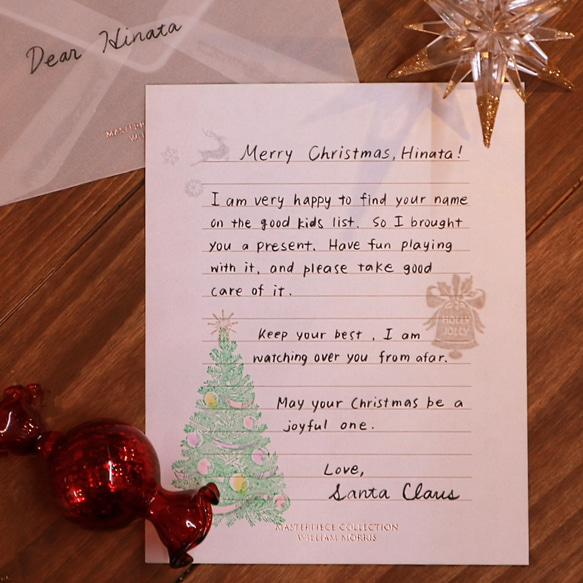 Dear Hinata
Merry Christmas, Hinata!
I am very happy to find your name
on the good kids list. So I brought
you a present. Have fun playing
with it, and please take good
care of it.
HOLLY
JOLLY
Keep your best, I am
watching over you from afar.
May your Christmas be a
joyful one.
Love,
Santa Claus
MASTERPIECE COLLECTION
WILLIAM MORRIS